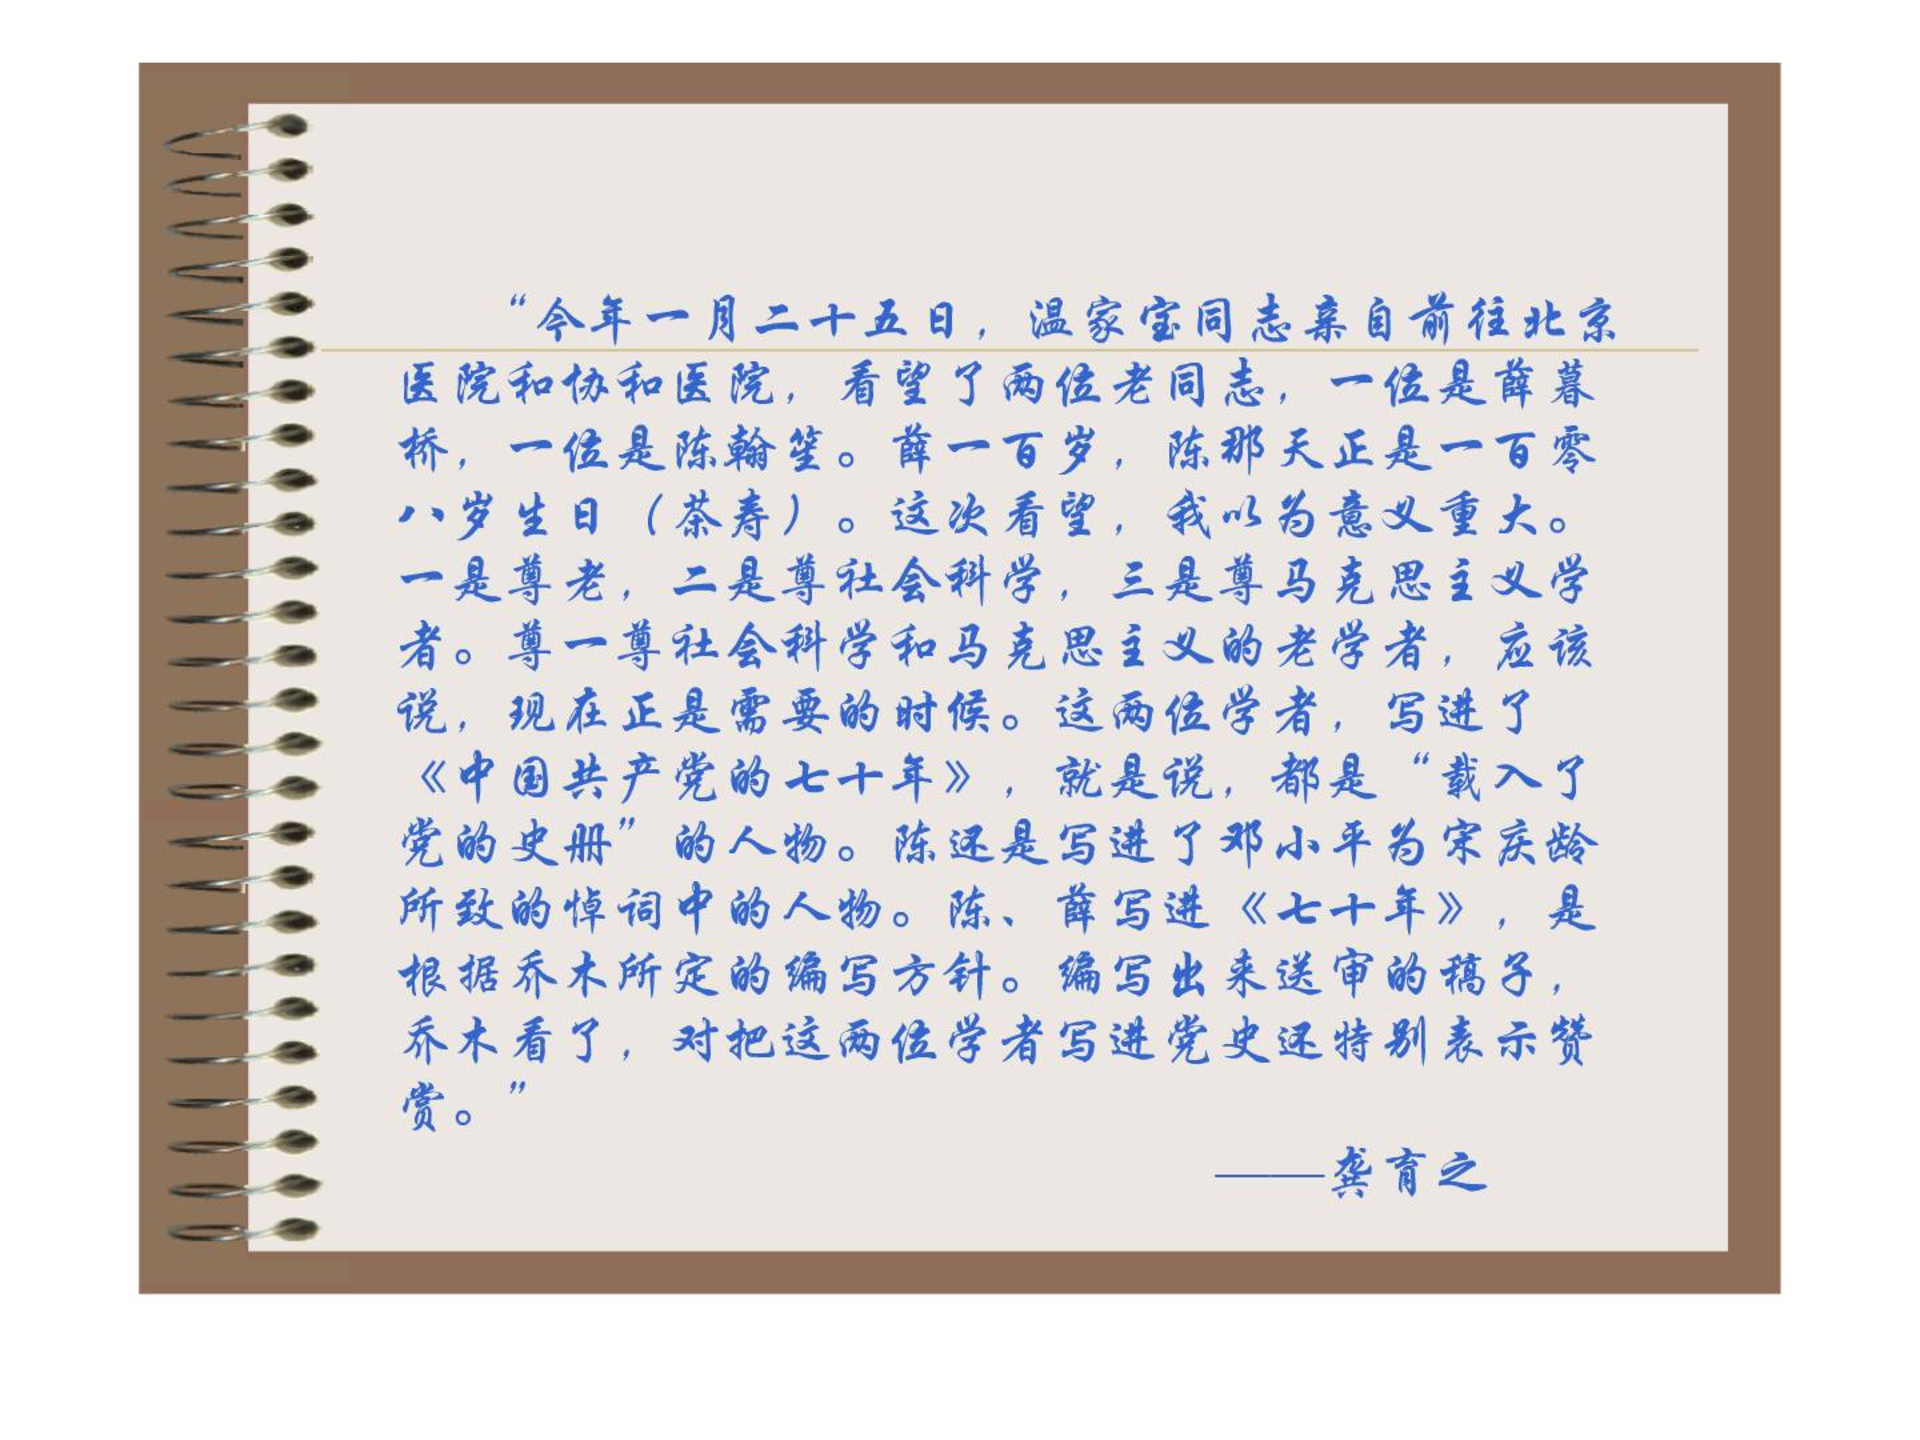 “今年一月二十五日，温家宝同志亲自前往北京
医院和协和医院，看望了两位老同志，一位是薛暮
桥，一位是陈翰笙。薛一百岁，陈那天正是一百零
八岁生日（茶寿）。这次看望，我以为意义重大。
一是尊老，二是尊社会科学，三是尊马克思主义学
者。尊一尊社会科学和马克思主义的老学者，应该
说，现在正是需要的时候。这两位学者，写进了
《中国共产党的七十年》，就是说，都是“载入了
党的史册”的人物。陈还是写进了邓小平为宋庆龄
所致的悼词中的人物。陈、薛写进《七十年》，是
根据乔木所定的编写方针。编写出来送审的稿子，
乔木看了，对把这两位学者写进党史还特别表示赞
赏。”
——龚育之